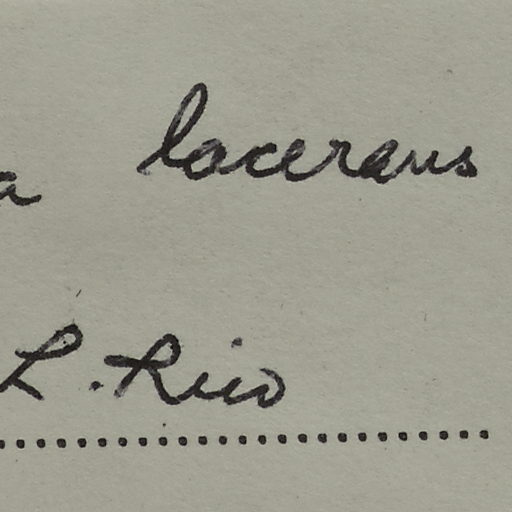 a lacerans
L. Rico